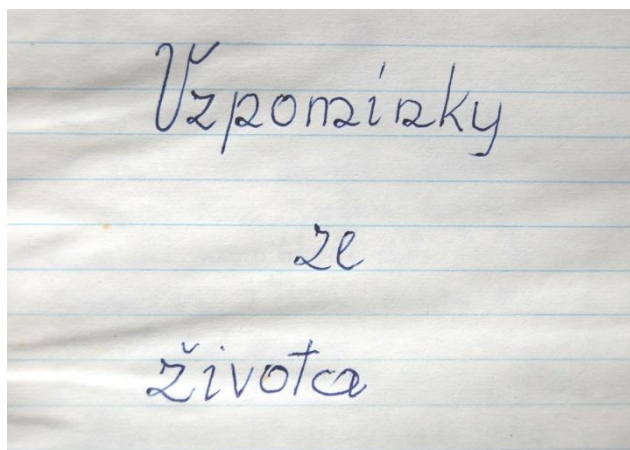 Vzpomínky
ze
života